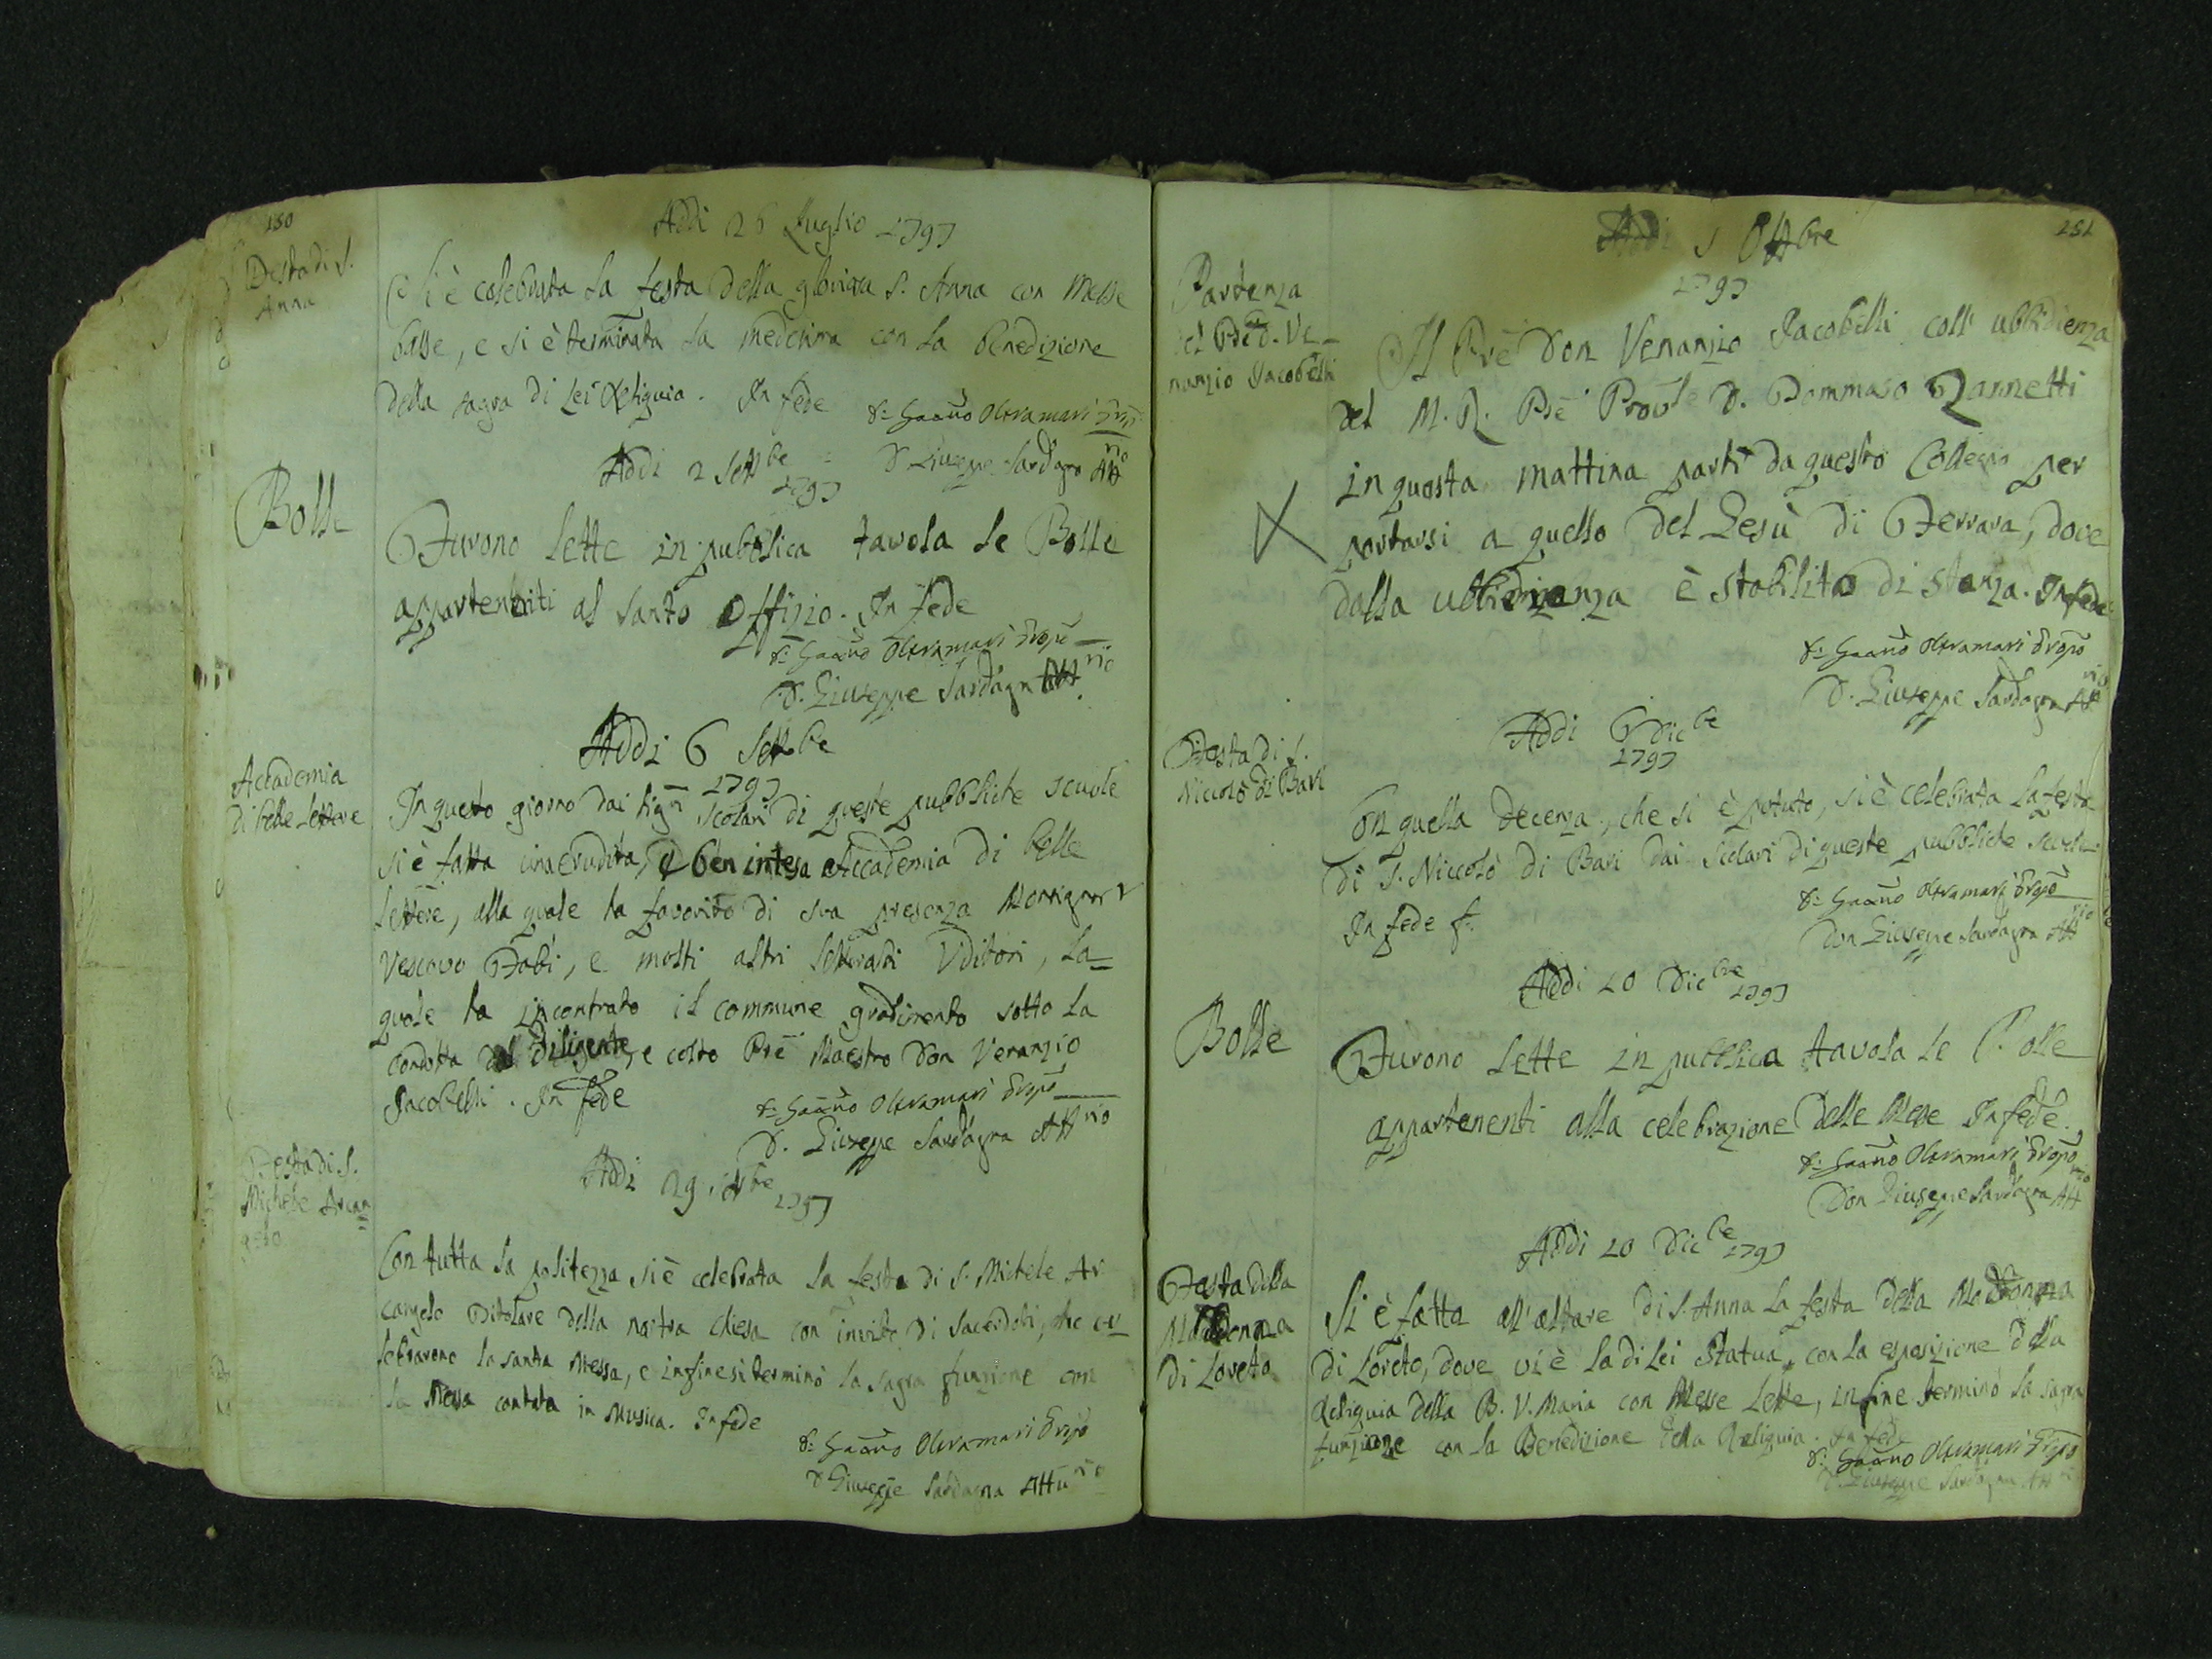 150
Addi 26 Luglio 1797
Festa di S.
Anna
Si è celebrata la festa della gloriosa S. Anna con Messe
basse, e si è terminata la medesima con la benedizione
della sagra di Lei Reliquia. In fede
D. Gaetano Oltramari Prepo
D Giuseppe Sardagna Attrio
Addi 2 Settbe
1797
Bolle
Furono lette in pubblica tavola le Bolle
appartenenti al Santo Offizio. In fede
D. Gaetano Oltramari Prepo
D. Giuseppe Sardagna Attrio
Addi 6 Settbe
1797
Accademia
di belle Lettere
In questo giorno dai Sigri Scolari di queste pubbliche scuole
si è fatta una erudita, e ben intesa Accademia di belle
Lettere, alla quale ha favorito di sua presenza Monsignor
Vescovo Fabi, e molti altri letterati Uditori, la
quale ha incontrato il commune gradimento sotto la
condotta del diligente, e colto Pre Maestro Don Venanzio
Jacobelli. In fede
D. Gaetano Oltramari Prepo
D. Giuseppe Sardagna Attrio
Addi 29 7bre 1797
Festa di S.
Michele Arcan=
gelo
Con tutta la politezza si è celebrata la festa di S. Michele Ar
cangelo Titolare della nostra chiesa con invito di Sacerdoti, che ce=
lebrarono la santa Messa, e in fine si terminò la sagra funzione con
la Messa cantata in Musica. In fede
D. Gaetano Oltramari Prepo
D Giuseppe Sardagna Atturio
151
Addi 5 Ottbre
1797
Partenza
del Pre D. Ve=
nanzio Jacobelli
Il Pre Don Venanzio Jacobelli coll' ubbidienza
del M. R. Pre Provle D. Tommaso Zannetti
in questa mattina partì da questo Collegio per
portarsi a quello del Gesù di Ferrara, dove
dalla ubbidienza è stabilito di stanza. In fede
D. Gaetano Oltramari Prepo
D. Giuseppe Sardagna Attrio
Addi 6 Dicbe
1797
Festa di S.
Niccolò di Bari
Con quella decenza, che si è potuto, si è celebrata la festa
di S. Niccolò di Bari dai Scolari di queste pubbliche scuole
In fede
D. Gaetano Oltramari Prepo
Don Giuseppe Sardagna Attrio
Addi 10 Dicbre 1797
Bolle
Furono lette in pubblica tavola le Bolle
appartenenti alla celebrazione delle Messe In fede.
D. Gaetano Oltramari Prepo
Don Giuseppe Sardagna Attrio
Addi 10 Dicbe 1797
Festa della
Madonna
di Loreto
Si è fatta all'altare di S. Anna la festa della Madonna
di Loreto, dove vi è la di Lei Statua, con la esposizione della
Reliquia della B. V. Maria con Messe lette, in fine terminò la sagra
funzione con la Benedizione della Reliquia. In fede
D. Gaetano Oltramari Prepo
D. Giuseppe Sardagna Attrio